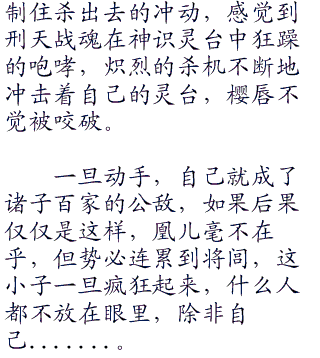 制住杀出去的冲动，感觉到
刑天战魂在神识灵台中狂躁
的咆哮，炽烈的杀机不断地
冲击着自己的灵台，樱唇不
觉被咬破。
一旦动手，自己就成了
诸子百家的公敌，如果后果
仅仅是这样，凰儿毫不在
乎，但势必连累到将闾，这
小子一旦疯狂起来，什么人
都不放在眼里，除非自
己.......。